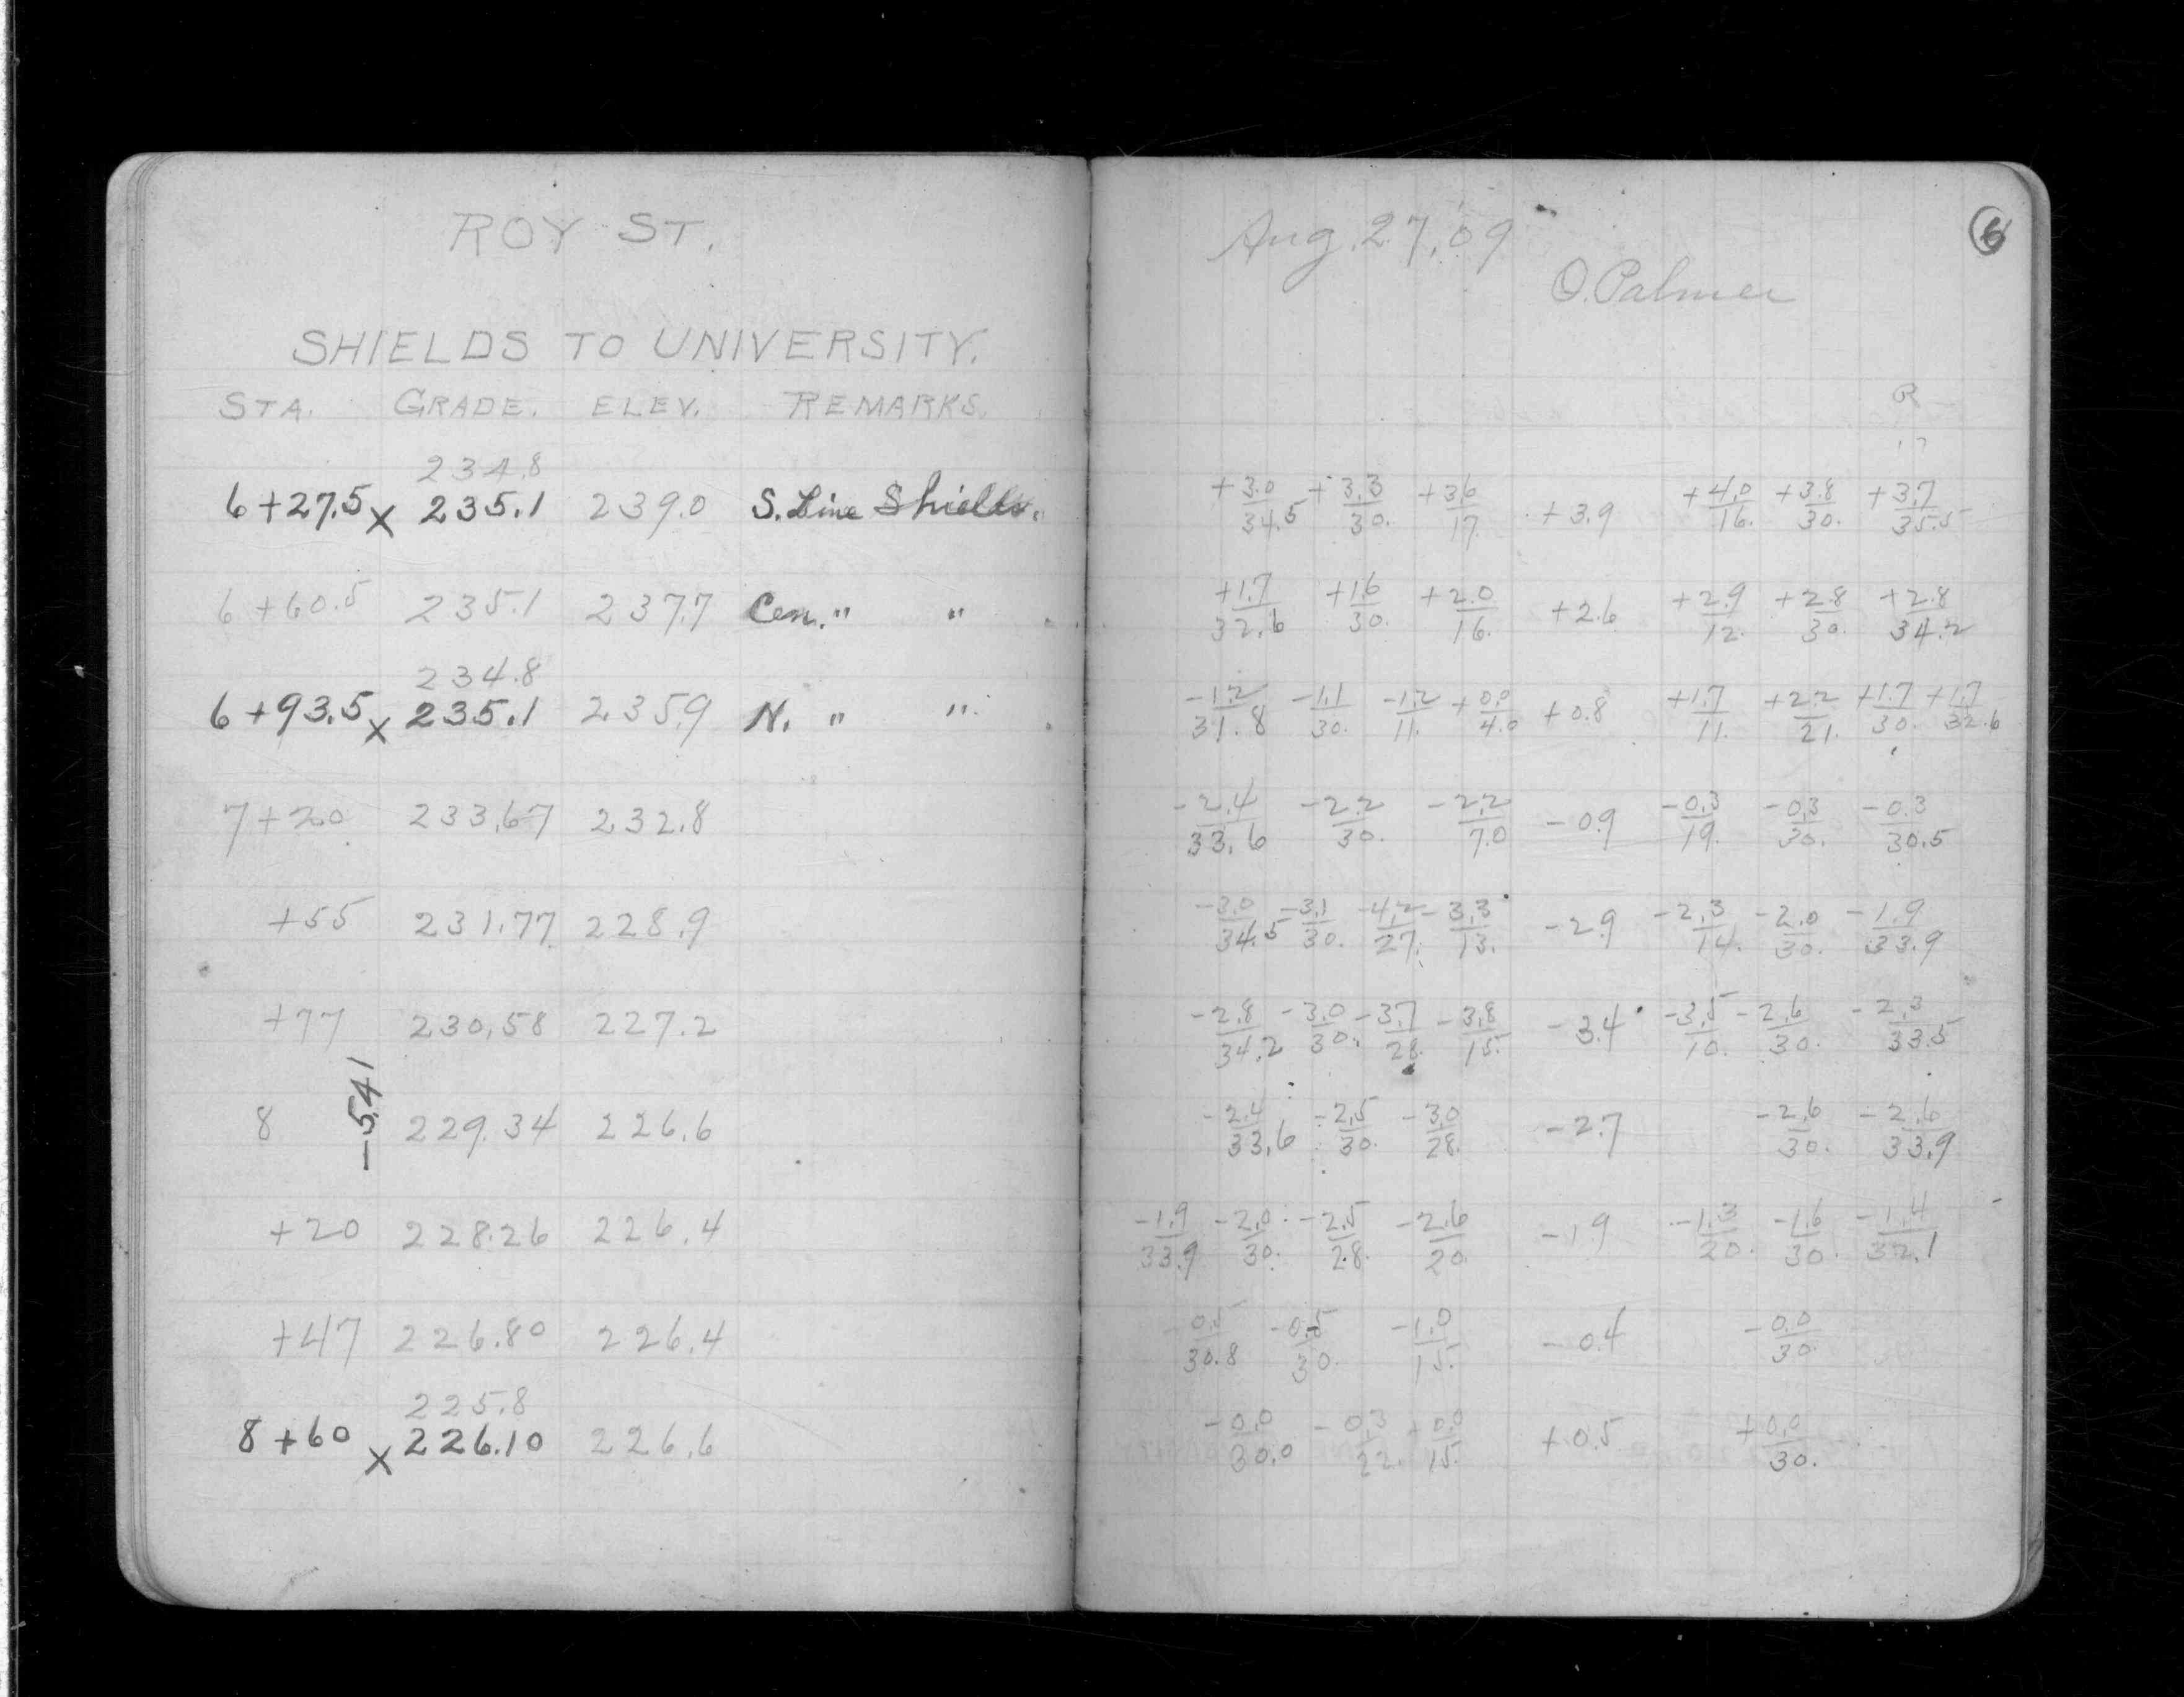 ROY ST.
SHIELDS TO UNIVERSITY.
STA. GRADE. ELEV. REMARKS.
234.8
6+27.5 x 235.1 239.0 S. Line Shields.
6+60.5 235.1 237.7 Cen. " "
234.8
6+93.5 x 235.1 235.9 N. " "
7+20 233.67 232.8
+55 231.77 228.9
+77 230.58 227.2
-5.41
8 229.34 226.6
+20 228.26 226.4
+47 226.80 226.4
225.8
8+60 x 226.10 226.6
Aug. 27, '09
6
O. Palmer
R
+3.0 +3.3 +3.6 +4.0 +3.8 +3.7
34.5 30. 17 +3.9 16. 30. 35.5
+1.7 +1.6 +2.0 +2.9 +2.8 +2.8
32.6 30. 16. +2.6 12. 30. 34.2
-1.2 -1.1 -1.2 +0.0 +1.7 +2.2 +1.7 +1.7
31.8 30. 11. 4.0 +0.8 11. 21. 30. 32.6
-2.4 -2.2 -2.2 -0.3 -0.3 -0.3
33.6 30. 7.0 -0.9 19. 30. 30.5
-3.0 -3.1 -4.2 -3.3 -2.3 -2.0 -1.9
34.5 30. 27. 13. -2.9 14. 30. 33.9
-2.8 -3.0 -3.7 -3.8 -3.5 -2.6 -2.3
34.2 30. 28. 15. -3.4 10. 30. 33.5
-2.4 -2.5 -3.0 -2.6 -2.6
33.6 30. 28. -2.7 30. 33.9
-1.9 -2.0 -2.5 -2.6 -1.3 -1.6 -1.4
33.9 30. 28. 20. -1.9 20. 30. 32.1
-0.5 -0.5 -1.0 -0.0
30.8 30. 15. -0.4 30.
-0.0 -0.3 +0.0 +0.0
30.0 22. 15. +0.5 30.